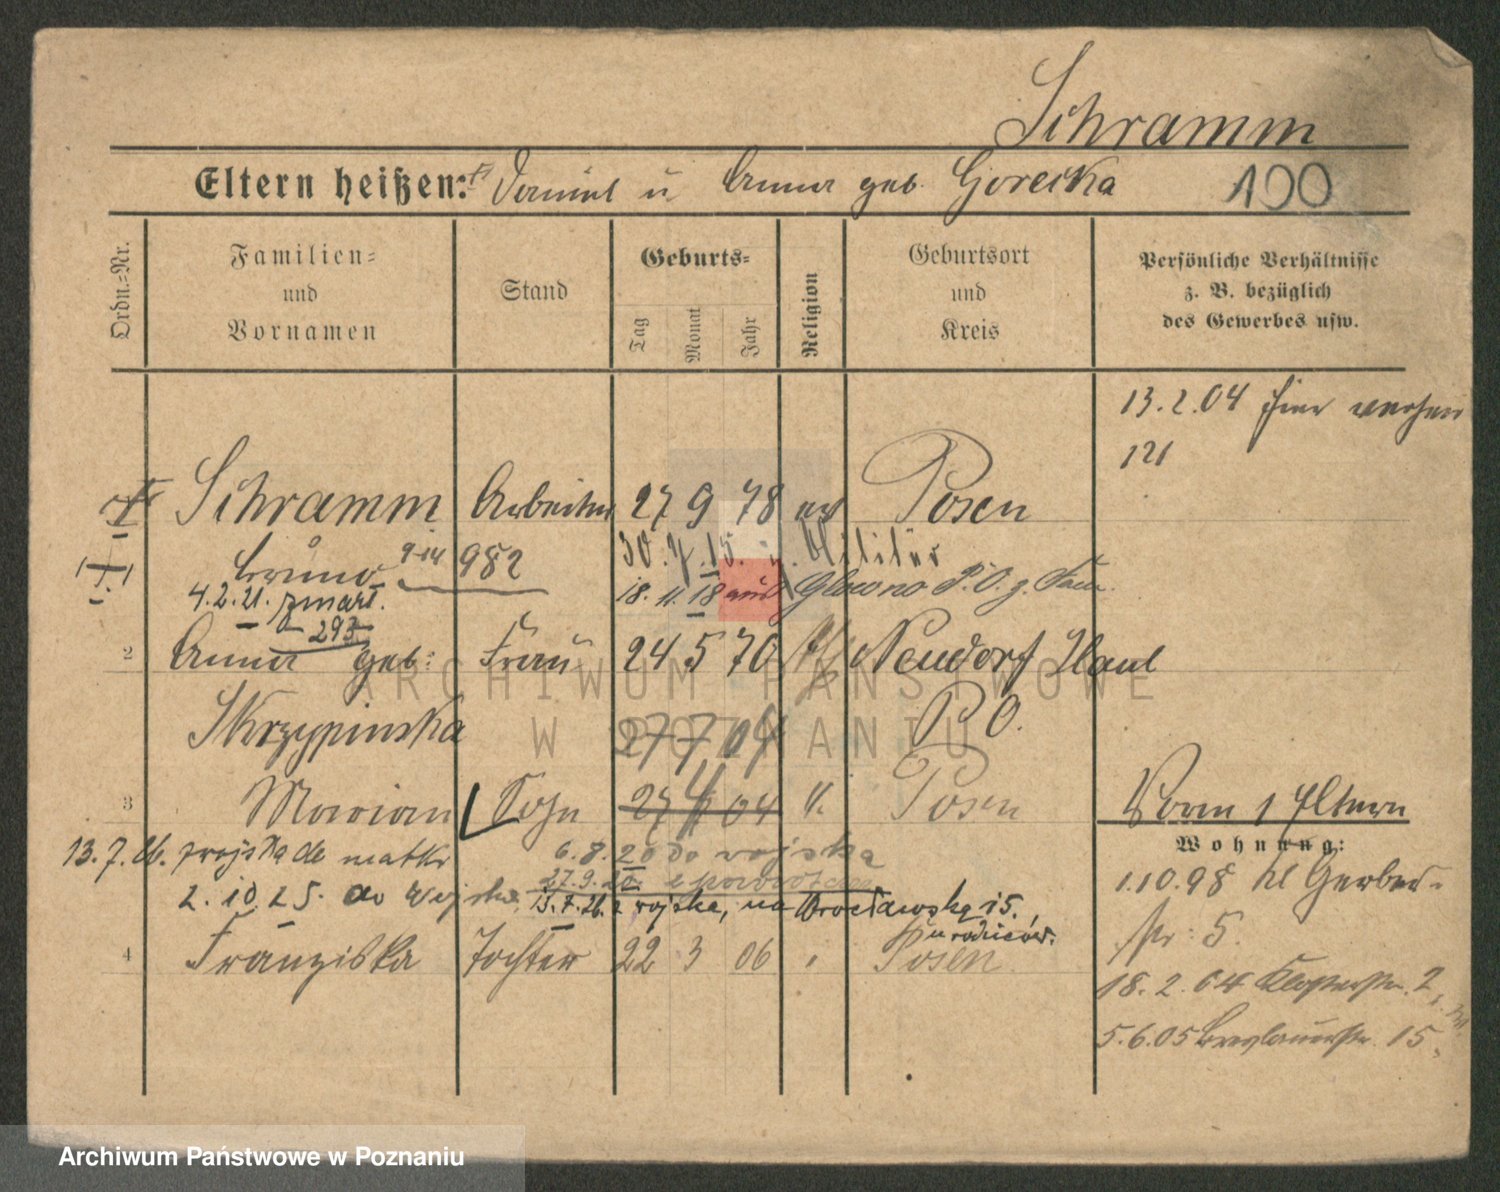 Schramm
Eltern heißen: Daniel u Anna geb. Gorecka 100
Ordn.-Nr.
Familien-
und
Vornamen
Stand
Geburts-
Tag
Monat
Jahr
Religion
Geburtsort
und
Kreis
Persönliche Verhältnisse
z. B. bezüglich
des Gewerbes usw.
13.2.04
121
Schramm Arbeiter 27 9 78 Posen
Bruno 982 30.7.15. z. Militär
4.2.21. zmarł. 18.11.18 aus Glowno P.O.
293
2 Anna geb: Frau 24 5 70 Neudorf
Skrzypinska 27 7 04 P O.
3 Marian Sohn 27 04 Posen
Vorm 1 Eltern
Wohnung:
13.7.26. matki 6.8.20 do wojska
27.9.
2.10.25. do wojska 13.7.26 z wojska, na Wrocławską 15,
u rodziców.
4 Franziska Tochter 22 3 06 " Posen
1.10.98 Kl Gerber-
str: 5.
18.2.04 Klosterstr. 2
5.6.05 Breslauerstr. 15
ARCHIWUM PAŃSTWOWE
W POZNANIU
Archiwum Państwowe w Poznaniu